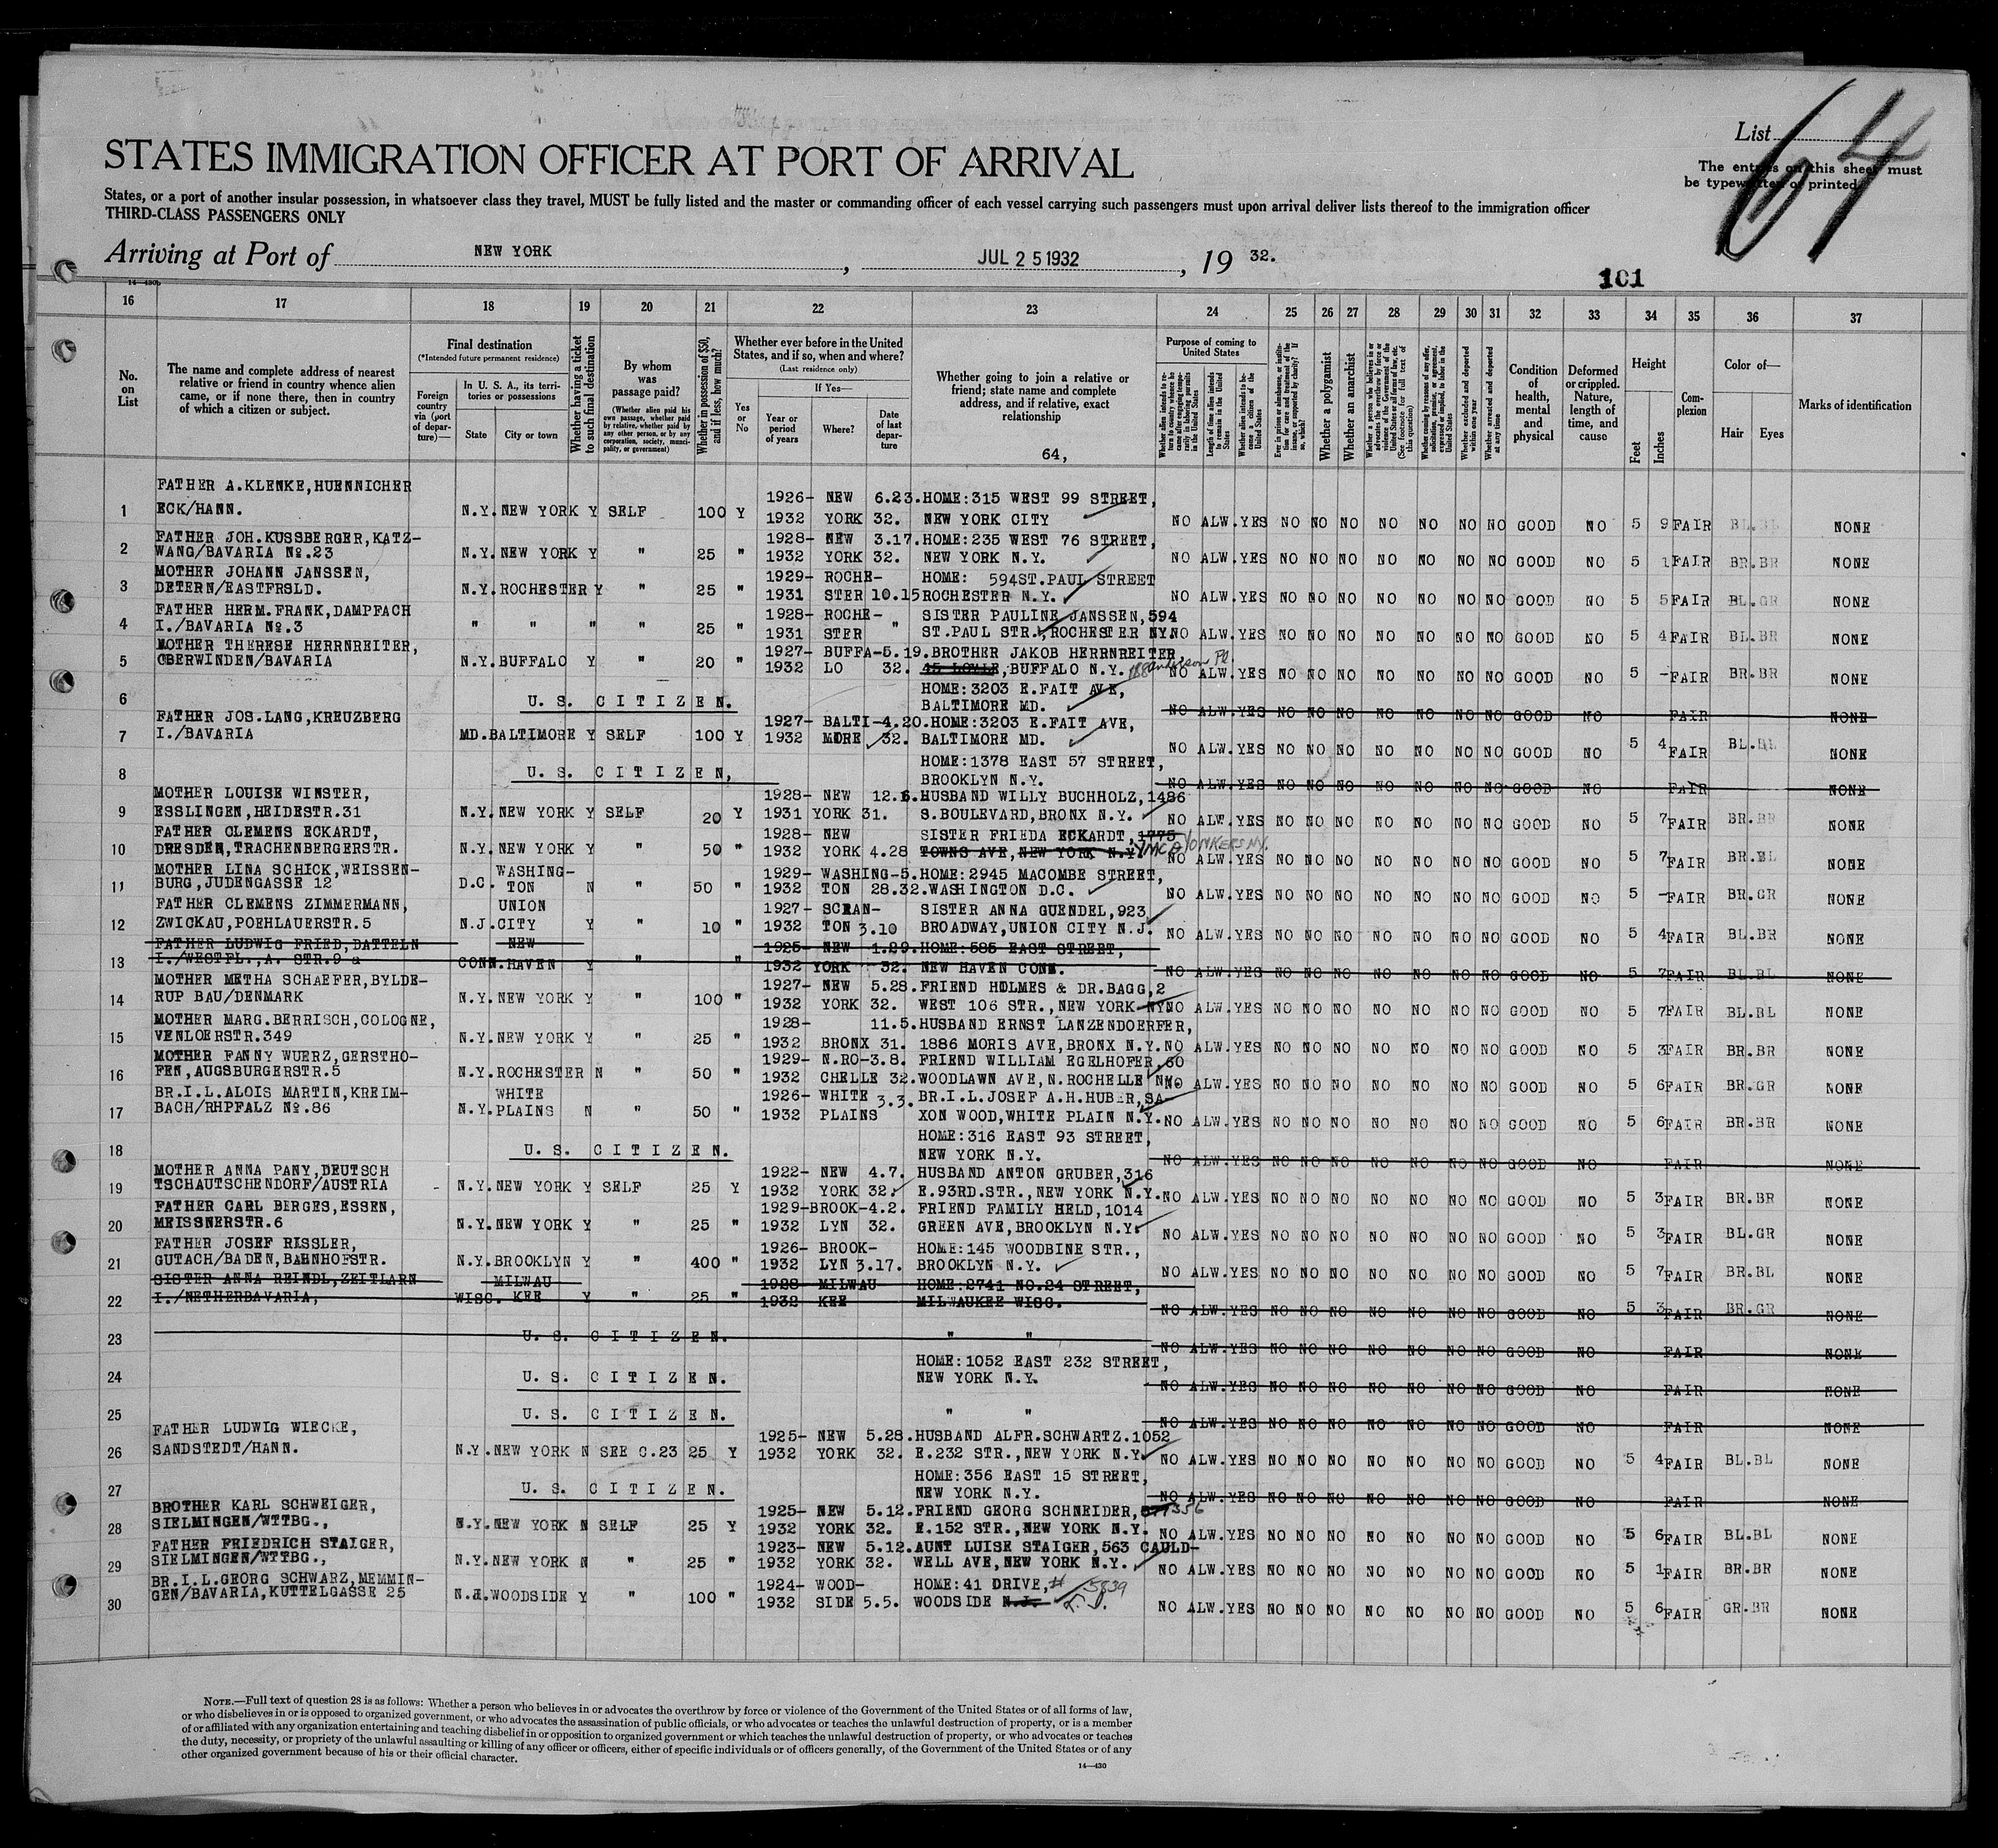 List 64
STATES IMMIGRATION OFFICER AT PORT OF ARRIVAL
The entries on this sheet must
be typewritten or printed.
States, or a port of another insular possession, in whatsoever class they travel, MUST be fully listed and the master or commanding officer of each vessel carrying such passengers must upon arrival deliver lists thereof to the immigration officer
THIRD-CLASS PASSENGERS ONLY
Arriving at Port of NEW YORK, JUL 25 1932, 19 32.
101
14—430b
16 17 18 19 20 21 22 23 24 25 26 27 28 29 30 31 32 33 34 35 36 37
No. on List
The name and complete address of nearest relative or friend in country whence alien came, or if none there, then in country of which a citizen or subject.
Final destination
(*Intended future permanent residence)
Foreign country via (port of departure)—
In U. S. A., its territories or possessions
State City or town
Whether having a ticket to such final destination
By whom was passage paid?
(Whether alien paid his own passage, whether paid by relative, whether paid by any other person, or by any corporation, society, municipality, or government)
Whether in possession of $50, and if less, how much?
Whether ever before in the United States, and if so, when and where?
(Last residence only)
Yes or No
If Yes—
Year or period of years Where? Date of last departure
Whether going to join a relative or friend; state name and complete address, and if relative, exact relationship
64,
Purpose of coming to United States
Whether alien intends to return to country whence he came after engaging temporarily in laboring pursuits in the United States
Length of time alien intends to remain in the United States
Whether alien intends to become a citizen of the United States
Ever in prison or almshouse, or institution for care and treatment of the insane, or supported by charity? If so, which?
Whether a polygamist
Whether an anarchist
Whether a person who believes in or advocates the overthrow by force or violence of the Government of the United States or all forms of law, etc. (See footnote for full text of this question)
Whether coming by reason of any offer, solicitation, promise, or agreement, expressed or implied, to labor in the United States
Whether excluded and deported within one year
Whether arrested and deported at any time
Condition of health, mental and physical
Deformed or crippled. Nature, length of time, and cause
Height
Feet Inches
Complexion
Color of—
Hair Eyes
Marks of identification
FATHER A.KLENKE,HUENNICHER 1926- NEW 6.23.HOME:315 WEST 99 STREET,
1 ECK/HANN. N.Y.NEW YORK Y SELF 100 Y 1932 YORK 32. NEW YORK CITY NO ALW.YES NO NO NO NO NO NO NO GOOD NO 5 9 FAIR BL.BL NONE
FATHER JOH.KUSSBERGER,KATZ- 1928- NEW 3.17.HOME:235 WEST 76 STREET,
2 WANG/BAVARIA No.23 N.Y.NEW YORK Y " 25 " 1932 YORK 32. NEW YORK N.Y. NO ALW.YES NO NO NO NO NO NO NO GOOD NO 5 1 FAIR BR.BR NONE
MOTHER JOHANN JANSSEN, 1929- ROCHE- HOME: 594ST.PAUL STREET
3 DETERN/EASTFRSLD. N.Y.ROCHESTER Y " 25 " 1931 STER 10.15 ROCHESTER N.Y. NO ALW.YES NO NO NO NO NO NO NO GOOD NO 5 5 FAIR BL.GR NONE
FATHER HERM.FRANK,DAMPFACH 1928- ROCHE- SISTER PAULINE JANSSEN,594
4 I./BAVARIA No.3 " " " " 25 " 1931 STER " ST.PAUL STR.,ROCHESTER NY. NO ALW.YES NO NO NO NO NO NO NO GOOD NO 5 4 FAIR BL.BR NONE
MOTHER THERESE HERRNREITER, 1927- BUFFA-5.19.BROTHER JAKOB HERRNREITER,
5 OBERWINDEN/BAVARIA N.Y.BUFFALO Y " 20 " 1932 LO 32. 45 LOYLE,BUFFALO N.Y. 188 Anderson Pl. NO ALW.YES NO NO NO NO NO NO NO GOOD NO 5 - FAIR BR.BR NONE
HOME:3203 E.FAIT AVE,
6 U. S. CITIZEN. BALTIMORE MD. NO ALW.YES NO NO NO NO NO NO NO GOOD NO FAIR NONE
FATHER JOS.LANG,KREUZBERG 1927- BALTI-4.20.HOME:3203 E.FAIT AVE,
7 I./BAVARIA MD.BALTIMORE Y SELF 100 Y 1932 MORE 32. BALTIMORE MD. NO ALW.YES NO NO NO NO NO NO NO GOOD NO 5 4 FAIR BL.BL NONE
HOME:1378 EAST 57 STREET,
8 U. S. CITIZEN, BROOKLYN N.Y. NO ALW.YES NO NO NO NO NO NO NO GOOD NO FAIR NONE
MOTHER LOUISE WINSTER, 1928- NEW 12.6.HUSBAND WILLY BUCHHOLZ,1486
9 ESSLINGEN,HEIDESTR.31 N.Y.NEW YORK Y SELF 20 Y 1931 YORK 31. S.BOULEVARD,BRONX N.Y. NO ALW.YES NO NO NO NO NO NO NO GOOD NO 5 7 FAIR BR.BR NONE
FATHER CLEMENS ECKARDT, 1928- NEW SISTER FRIEDA ECKARDT,1775
10 DRESDEN,TRACHENBERGERSTR. N.Y.NEW YORK Y " 50 " 1932 YORK 4.28 TOWNS AVE,NEW YORK N.Y. YMCA YONKERS NY. NO ALW.YES NO NO NO NO NO NO NO GOOD NO 5 7 FAIR BR.BL NONE
MOTHER LINA SCHICK,WEISSEN- WASHING- 1929- WASHING-5.HOME:2945 MACOMBE STREET,
11 BURG,JUDENGASSE 12 D.C. TON N " 50 " 1932 TON 28.32.WASHINGTON D.C. NO ALW.YES NO NO NO NO NO NO NO GOOD NO 5 - FAIR BR.GR NONE
FATHER CLEMENS ZIMMERMANN, UNION 1927- SCRAN- SISTER ANNA GUENDEL,923
12 ZWICKAU,POEHLAUERSTR.5 N.J.CITY Y " 10 " 1932 TON 3.10 BROADWAY,UNION CITY N.J. NO ALW.YES NO NO NO NO NO NO NO GOOD NO 5 4 FAIR BL.BR NONE
FATHER LUDWIG FRIED,DATTELN NEW 1925- NEW 1.29.HOME:585 EAST STREET,
13 I./WESTFL.,A. STR.9 a CONN.HAVEN Y " " 1932 YORK 32. NEW HAVEN CONN. NO ALW.YES NO NO NO NO NO NO NO GOOD NO 5 7 FAIR BL.BL NONE
MOTHER METHA SCHAEFER,BYLDE- 1927- NEW 5.28.FRIEND HOLMES & DR.BAGG,2
14 RUP BAU/DENMARK N.Y.NEW YORK Y " 100 " 1932 YORK 32. WEST 106 STR.,NEW YORK NY. NO ALW.YES NO NO NO NO NO NO NO GOOD NO 5 7 FAIR BL.BL NONE
MOTHER MARG.BERRISCH,COLOGNE, 1928- 11.5.HUSBAND ERNST LANZENDOERFER,
15 VENLOERSTR.349 N.Y.NEW YORK Y " 25 " 1932 BRONX 31. 1886 MORIS AVE,BRONX N.Y. NO ALW.YES NO NO NO NO NO NO NO GOOD NO 5 3 FAIR BR.BR NONE
MOTHER FANNY WUERZ,GERSTHO- 1929- N.RO-3.8. FRIEND WILLIAM EGELHOFER,60
16 FEN,AUGSBURGERSTR.5 N.Y.ROCHESTER N " 50 " 1932 CHELLE 32.WOODLAWN AVE,N.ROCHELLE NY. NO ALW.YES NO NO NO NO NO NO NO GOOD NO 5 6 FAIR BR.GR NONE
BR.I.L.ALOIS MARTIN,KREIM- WHITE 1926- WHITE 3.3. BR.I.L.JOSEF A.H.HUBER,SA-
17 BACH/RHPFALZ No.86 N.Y.PLAINS N " 50 " 1932 PLAINS XON WOOD,WHITE PLAIN N.Y. NO ALW.YES NO NO NO NO NO NO NO GOOD NO 5 6 FAIR BR.BR NONE
HOME:316 EAST 93 STREET,
18 U. S. CITIZEN. NEW YORK N.Y. NO ALW.YES NO NO NO NO NO NO NO GOOD NO FAIR NONE
MOTHER ANNA PANY,DEUTSCH 1922- NEW 4.7. HUSBAND ANTON GRUBER,316
19 TSCHAUTSCHENDORF/AUSTRIA N.Y.NEW YORK Y SELF 25 Y 1932 YORK 32. E.93RD.STR.,NEW YORK N.Y. NO ALW.YES NO NO NO NO NO NO NO GOOD NO 5 3 FAIR BR.BR NONE
FATHER CARL BERGES,ESSEN, 1929-BROOK-4.2. FRIEND FAMILY HELD,1014
20 MEISSNERSTR.6 N.Y.NEW YORK Y " 25 " 1932 LYN 32. GREEN AVE,BROOKLYN N.Y. NO ALW.YES NO NO NO NO NO NO NO GOOD NO 5 3 FAIR BL.GR NONE
FATHER JOSEF RISSLER, 1926- BROOK- HOME:145 WOODBINE STR.,
21 GUTACH/BADEN,BAHNHOFSTR. N.Y.BROOKLYN Y " 400 " 1932 LYN 3.17. BROOKLYN N.Y. NO ALW.YES NO NO NO NO NO NO NO GOOD NO 5 7 FAIR BR.BL NONE
SISTER ANNA REINDL,ZEITLARN MILWAU 1928 MILWAU HOME:2741 NO.24 STREET,
22 I./NETHERBAVARIA, WISC. KEE Y " 25 " 1932 KEE MILWAUKEE WISC. NO ALW.YES NO NO NO NO NO NO NO GOOD NO 5 3 FAIR BR.GR NONE
23 U. S. CITIZEN. " " NO ALW.YES NO NO NO NO NO NO NO GOOD NO FAIR NONE
HOME:1052 EAST 232 STREET,
24 U. S. CITIZEN. NEW YORK N.Y. NO ALW.YES NO NO NO NO NO NO NO GOOD NO FAIR NONE
25 U. S. CITIZEN. " " NO ALW.YES NO NO NO NO NO NO NO GOOD NO FAIR NONE
FATHER LUDWIG WIECKE, 1925- NEW 5.28.HUSBAND ALFR.SCHWARTZ.1052
26 SANDSTEDT/HANN. N.Y.NEW YORK N SEE C.23 25 Y 1932 YORK 32. E.232 STR.,NEW YORK N.Y. NO ALW.YES NO NO NO NO NO NO NO GOOD NO 5 4 FAIR BL.BL NONE
HOME:356 EAST 15 STREET,
27 U. S. CITIZEN. NEW YORK N.Y. NO ALW.YES NO NO NO NO NO NO NO GOOD NO FAIR NONE
BROTHER KARL SCHWEIGER, 1925- NEW 5.12.FRIEND GEORG SCHNEIDER, 356
28 SIELMINGEN/WTTBG., N.Y.NEW YORK N SELF 25 Y 1932 YORK 32. E.152 STR.,NEW YORK N.Y. NO ALW.YES NO NO NO NO NO NO NO GOOD NO 5 6 FAIR BL.BL NONE
FATHER FRIEDRICH STAIGER, 1923- NEW 5.12.AUNT LUISE STAIGER,563 CAULD-
29 SIELMINGEN/WTTBG., N.Y.NEW YORK N " 25 " 1932 YORK 32. WELL AVE,NEW YORK N.Y. NO ALW.YES NO NO NO NO NO NO NO GOOD NO 5 1 FAIR BR.BR NONE
BR.I.L.GEORG SCHWARZ,MEMMIN- 1924- WOOD- HOME:41 DRIVE,# 5839
30 GEN/BAVARIA,KUTTELGASSE 25 WOODSIDE Y " 100 " 1932 SIDE 5.5. WOODSIDE N.J. L.I. NO ALW.YES NO NO NO NO NO NO NO GOOD NO 5 6 FAIR GR.BR NONE
NOTE.—Full text of question 28 is as follows: Whether a person who believes in or advocates the overthrow by force or violence of the Government of the United States or of all forms of law,
or who disbelieves in or is opposed to organized government, or who advocates the assassination of public officials, or who advocates or teaches the unlawful destruction of property, or is a member
of or affiliated with any organization entertaining and teaching disbelief in or opposition to organized government or which teaches the unlawful destruction of property, or who advocates or teaches
the duty, necessity, or propriety of the unlawful assaulting or killing of any officer or officers, either of specific individuals or of officers generally, of the Government of the United States or of any
other organized government because of his or their official character.
14—430